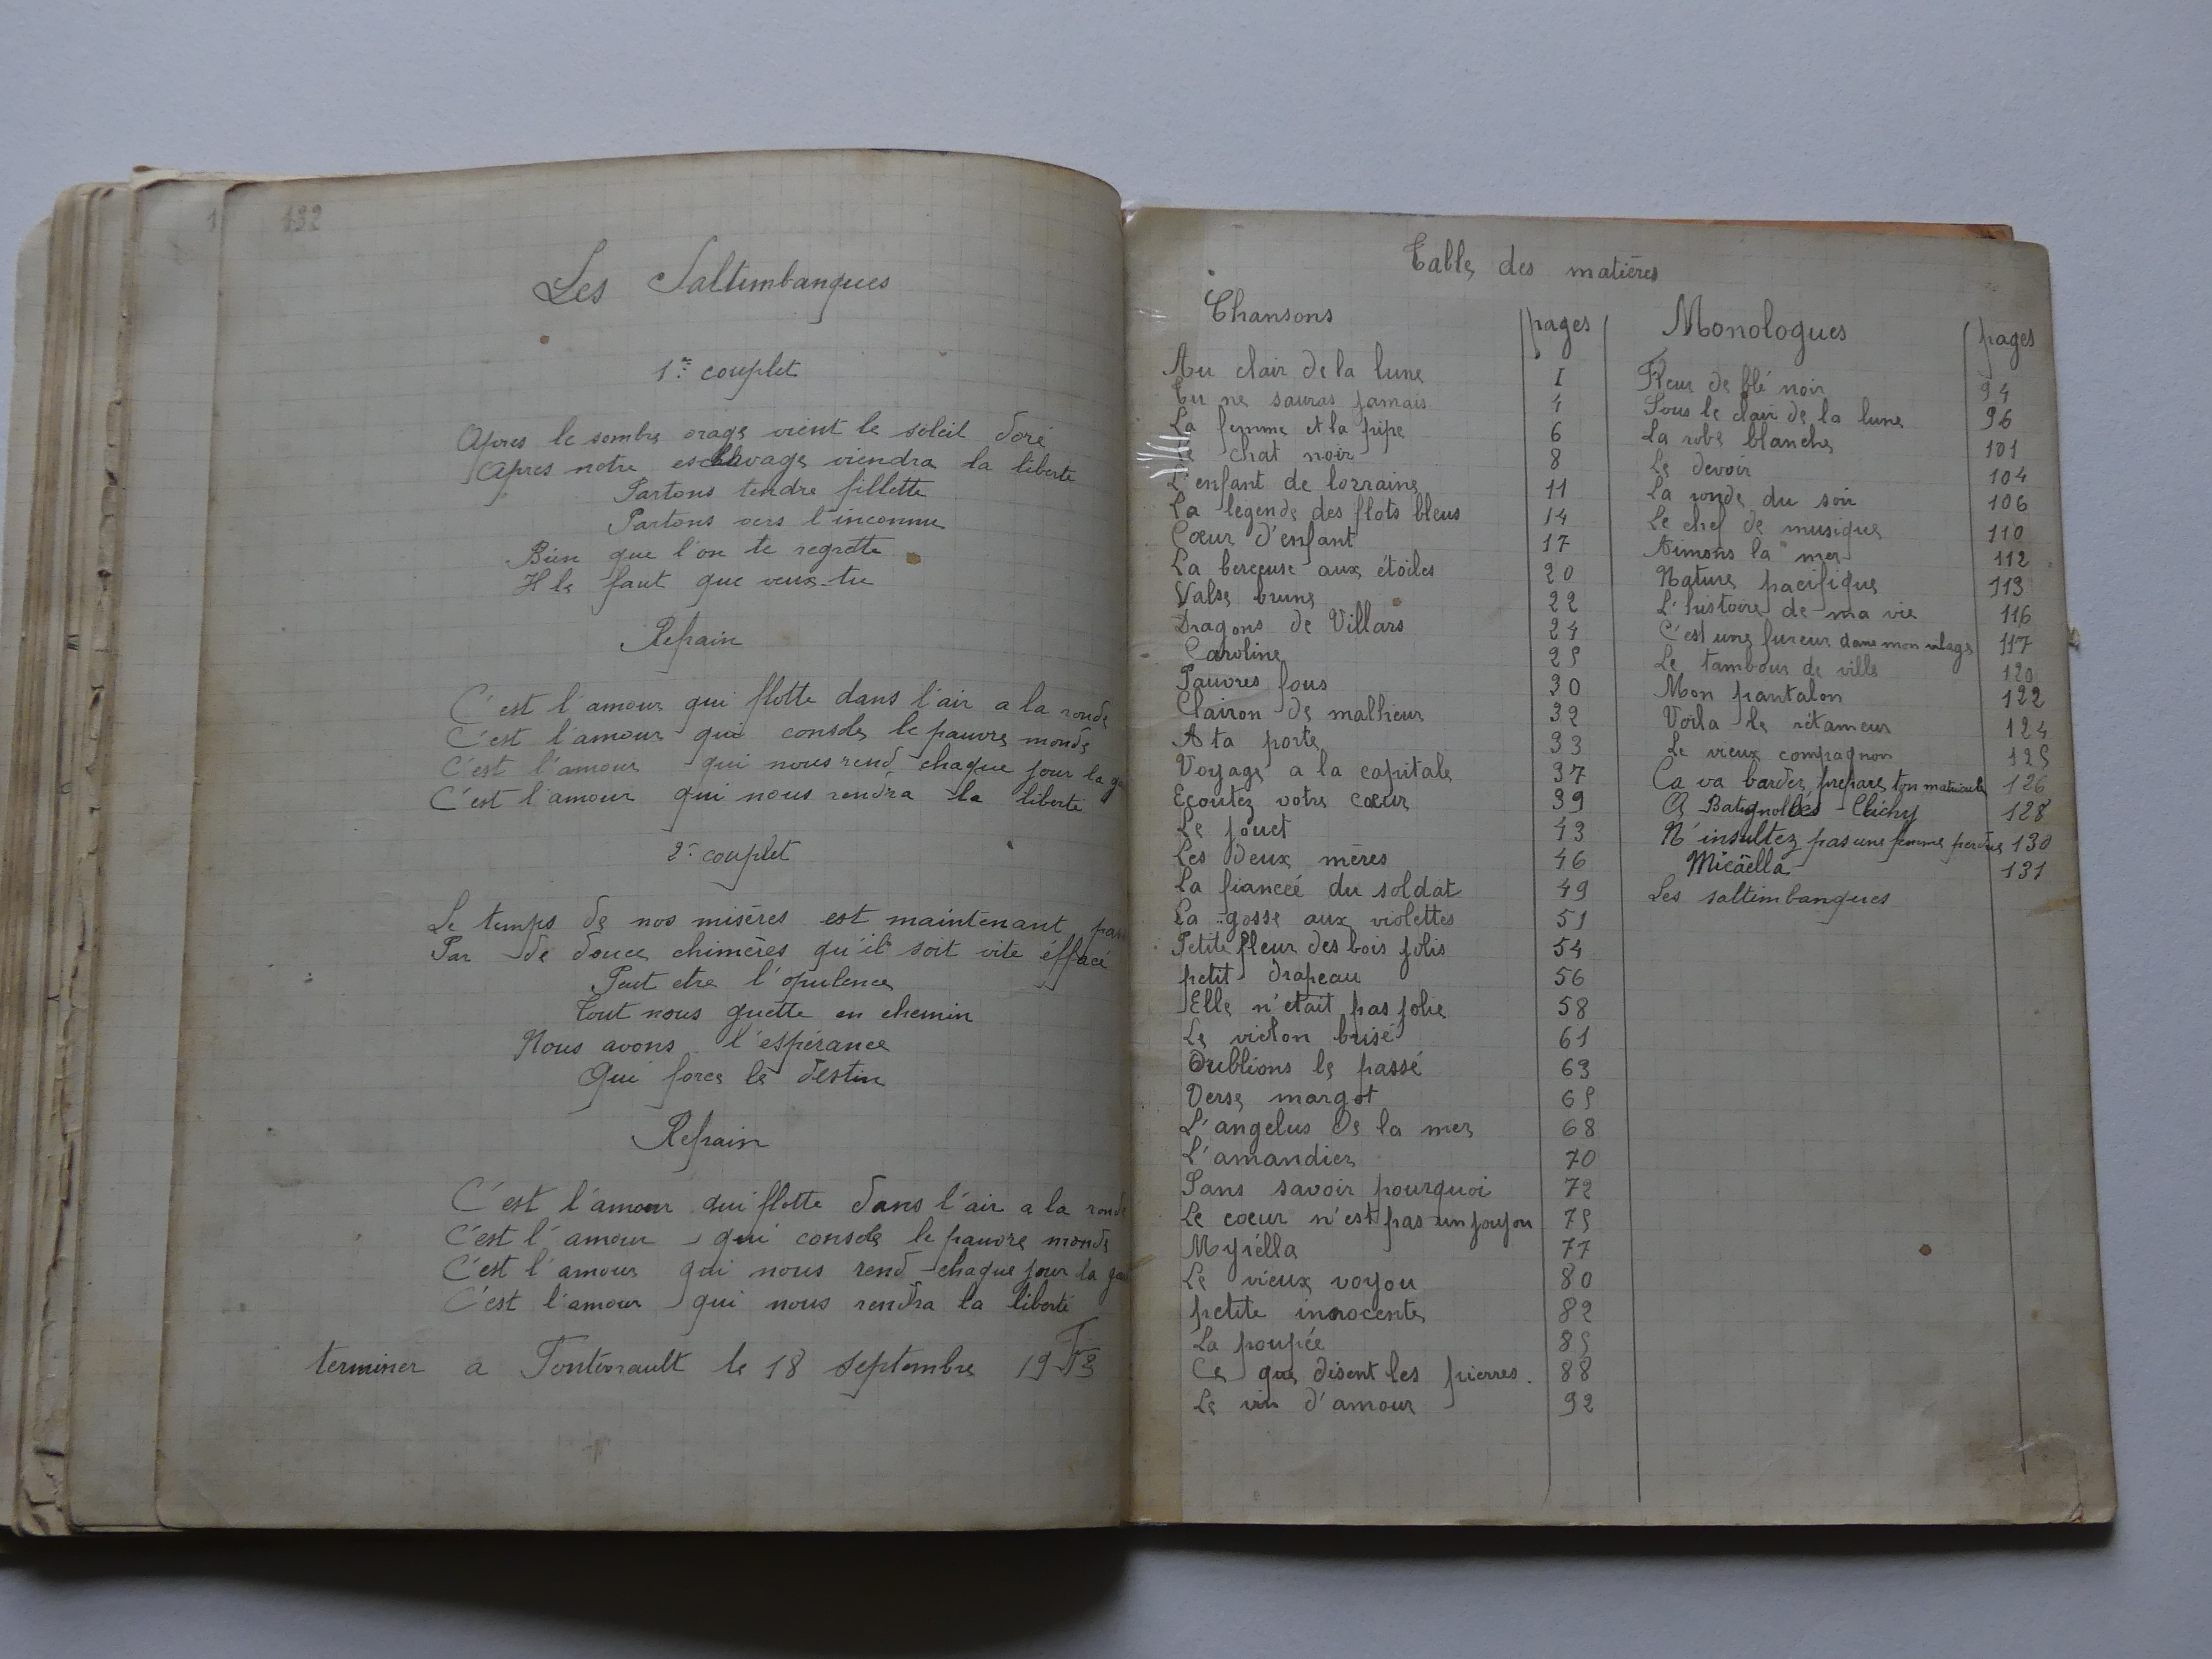 132
Les Saltimbanques
1er couplet
Apres le sombre orage vient le soleil doré
Apres notre esclavage viendra la liberte
Partons tendre fillette
Partons vers l'inconnu
Bien que l'on te regrette
Il le faut que veux-tu
Refrain
C'est l'amour qui flotte dans l'air a la ronde
C'est l'amour qui console le pauvre monde
C'est l'amour qui nous rend chaque jour la
C'est l'amour qui nous rendra la liberté
2e couplet
Le temps de nos misères est maintenant
Par de douce chimères qu'il soit vite éffacé
Peut etre l'opulence
Tout nous guette en chemin
Nous avons l'espérance
Qui force le destin
Refrain
C'est l'amour qui flotte dans l'air a la ronde
C'est l'amour qui console le pauvre monde
C'est l'amour qui nous rend chaque jour la
C'est l'amour qui nous rendra la liberté
terminer a le 18 septembre
Table des matières
Chansons pages
Au clair de la lune I
Tu ne sauras jamais 4
La femme et la pipe 6
chat noir 8
L'enfant de lorraine 11
La legende des flots bleus 14
Cœur d'enfant 17
La berceuse aux étoiles 20
Valse brune 22
Dragons de Villars 24
Caroline 25
Pauvres fous 30
Clairon de malheur 32
A ta porte 33
Voyage a la capitale 37
Ecoutez votre cœur 39
Le jouet 43
Les deux mères 46
La fianceé du soldat 49
La gosse aux violettes 51
Petite fleur des bois jolis 54
petit drapeau 56
Elle n'etait pas jolie 58
Le violon brisé 61
Oublions le passé 63
Verse margot 65
L'angelus de la mer 68
L'amandier 70
Sans savoir pourquoi 72
Le coeur n'est pas un joujou 75
Myrélla 77
Le vieux voyou 80
petite innocente 82
La poupée 85
Ce que disent les pierres. 88
Le vin d'amour 92
Monologues pages
Fleur de blé noir 94
Sous le clair de la lune 96
La robe blanche 101
Le devoir 104
La ronde du soir 106
Le chef de musique 110
Aimons la mer 112
Nature pacifique 113
L'histoire de ma vie 116
C'est une fureur dans mon vilage 117
Le tambour de ville 120
Mon pantalon 122
Voila le rétameur 124
Le vieux compagnon 125
Ca va barder prepare ton matricule 126
A Batignolles - Clichy 128
N'insultez pas une femme perdue 130
Micäella 131
Les saltimbanques